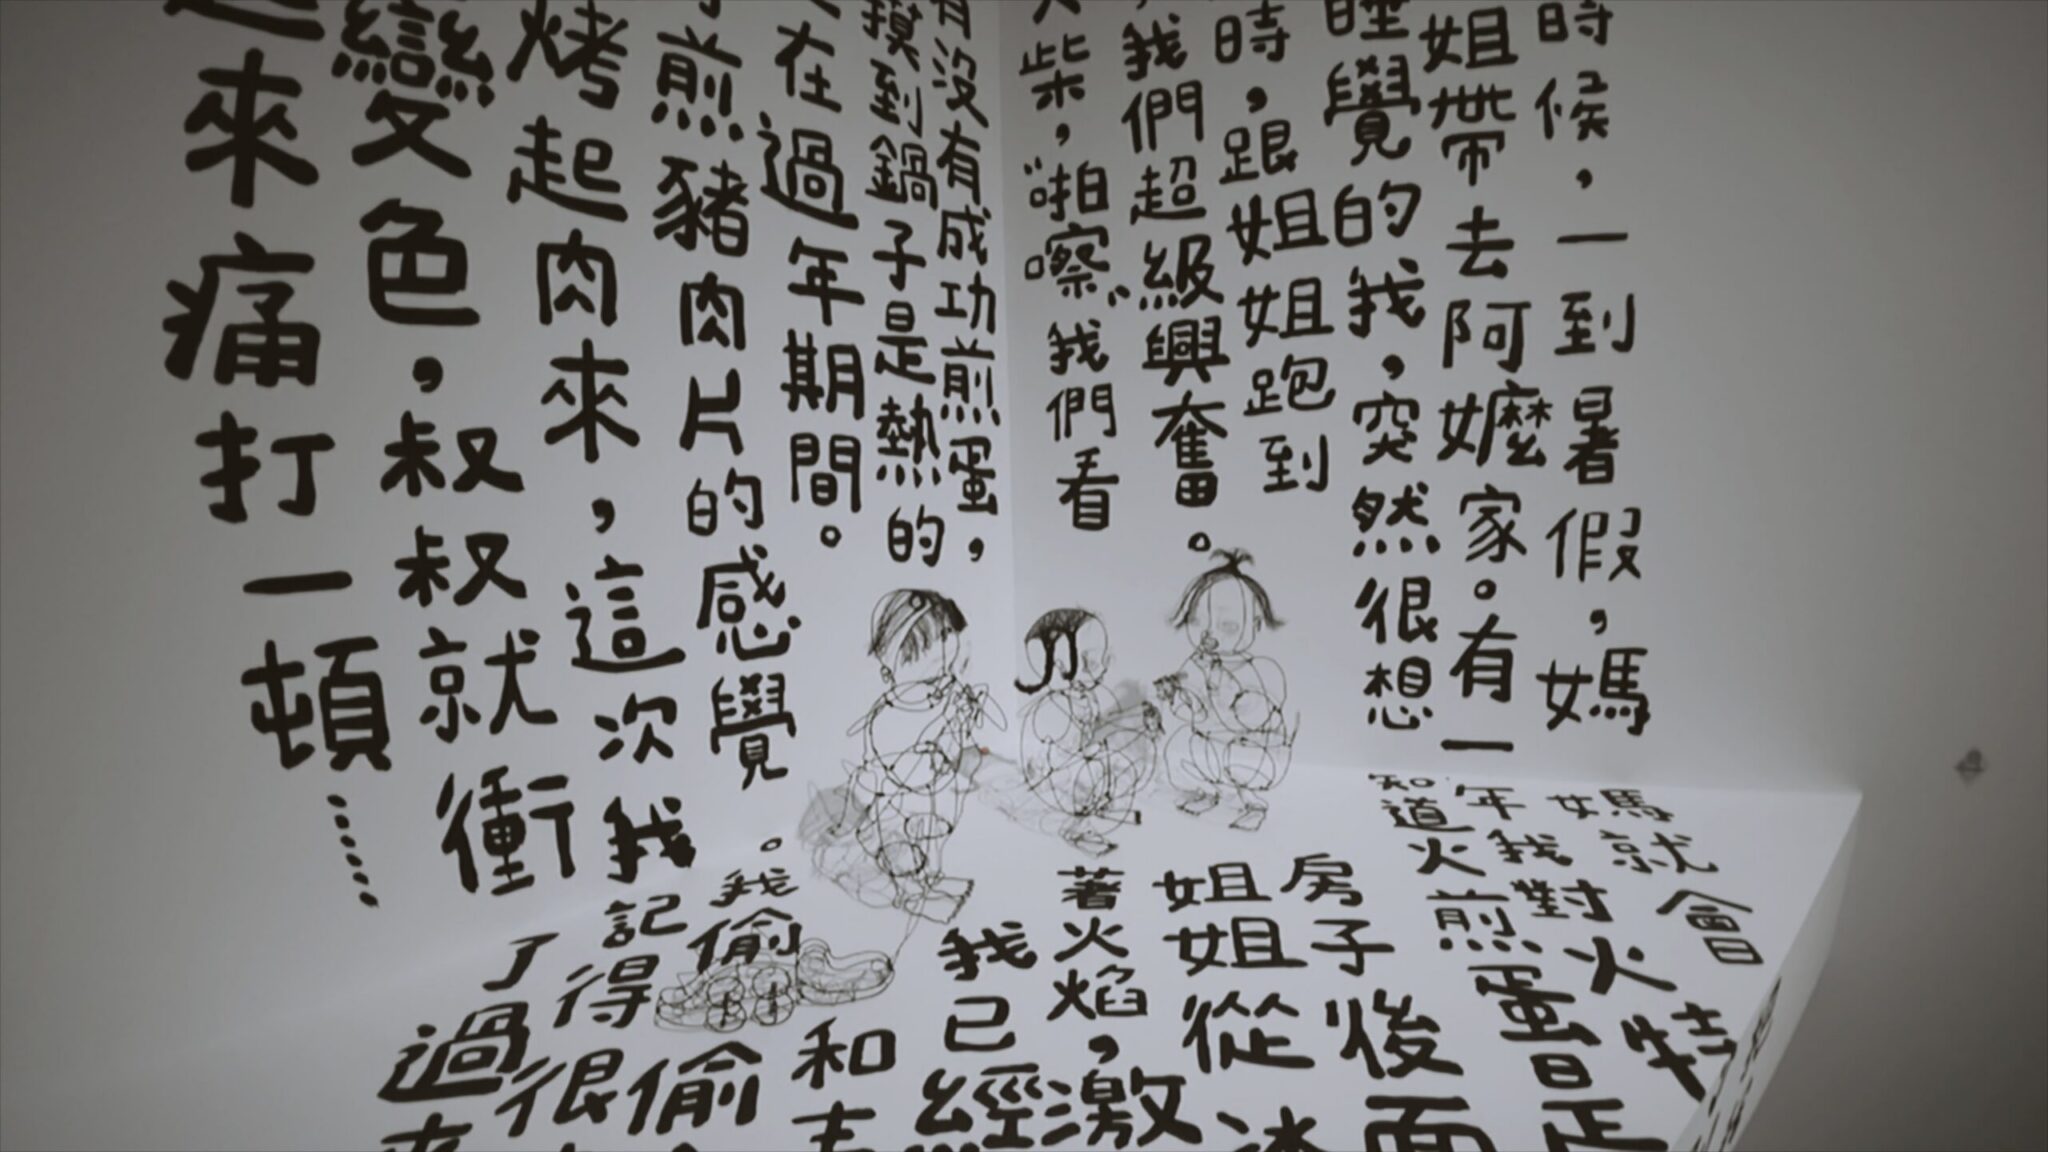 時候，一到暑假，媽媽就會
姐帶去阿嬤家。有一年我對火特
睡覺的我，突然很想知道火煎蛋是
時，跟姐姐跑到房子後面
我們超級興奮。姐姐從
柴，“啪嚓”我們看著火焰，激
我已經
有沒有成功煎蛋，
摸到鍋子是熱的和
在過年期間。
煎豬肉片的感覺。我偷偷
烤起肉來，這次我記得很
變色，叔叔就衝了過來
起來痛打一頓……